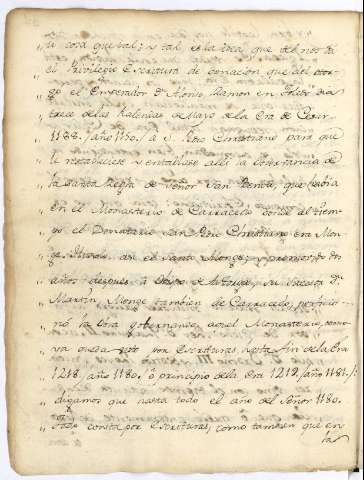 „ u cosa que tal; y tal es la idea que de nos dá
„ el Privilegio Escritura de Donacion que del otor-
„ gó el Emperador Dn. Alonso Ramon en
„ trece de las Kalendas de Mayo de la Era de Cesar
„ 1188. año 1150. a S. Pedro Christiano para que
„ restableciese y entablase alli la observancia de
„ la Santa Regla de Señor San Benito, que havia
„ en el Monasterio de Carracedo donde al tiem-
„ po el Donatario San Pedro Christiano era Mon-
„ ge. este Santo Monge, y dos
„ años despues Obispo de Astorga, su
„ Martin, Monge tambien de Carracedo,
„ nó la Obra gobernando aquel Monasterio, como
„ va por Escrituras hasta fin de la Era
„ 1218. año 1180. ó principio de la Era 1219. año 1181.
„ digamos que hasta todo el año del Señor 1180.
„ Todo consta por Escrituras, como tambien que en
la